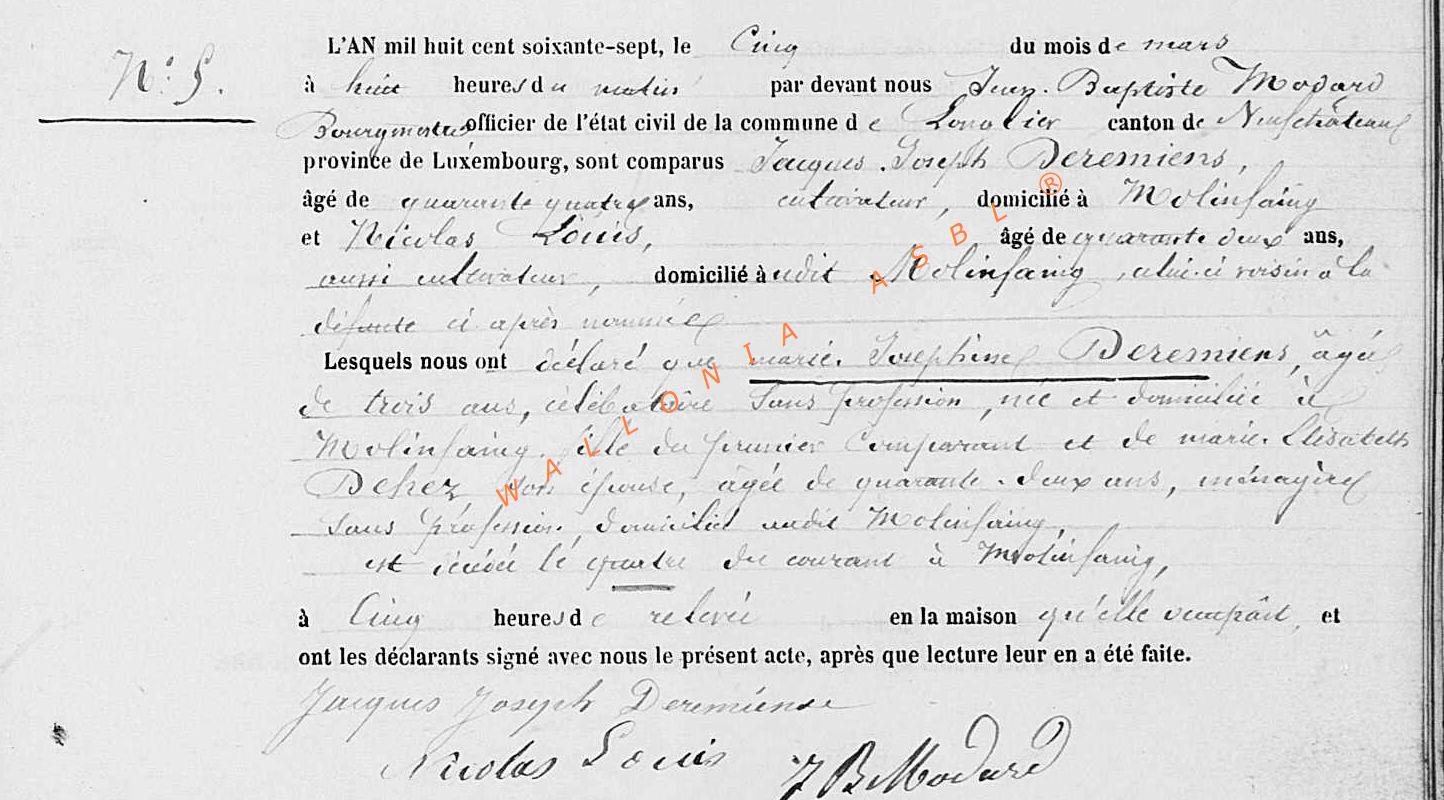 N.º 5.
L'AN mil huit cent soixante-sept, le Cinq du mois de mars
à huit heures du matin par devant nous Jean-Baptiste Modard
Bourgmestre officier de l'état civil de la commune de Longlier canton de Neufchâteau
province de Luxembourg, sont comparus Jacques Joseph Deremiens,
âgé de quarante quatre ans, cultivateur, domicilié à Molinfaing
et Nicolas Louis, âgé de quarante deux ans,
aussi cultivateur, domicilié audit Molinfaing, celui-ci voisin à la
défunte ci après nommée
Lesquels nous ont déclaré que marie Josephine Deremiens, âgée
de trois ans, célibataire sans profession, née et domiciliée à
Molinfaing, fille du premier Comparant et de marie Elisabeth
Dehez son épouse, âgée de quarante-deux ans, ménagère
sans profession, domiciliée audit Molinfaing,
est décédée le quatre du courant à Molinfaing,
à Cinq heures de relevée en la maison qu'elle occupait, et
ont les déclarants signé avec nous le présent acte, après que lecture leur en a été faite.
Jacques Joseph Deremiense
Nicolas Louis J B Modard
WALLONIA ASBL ®